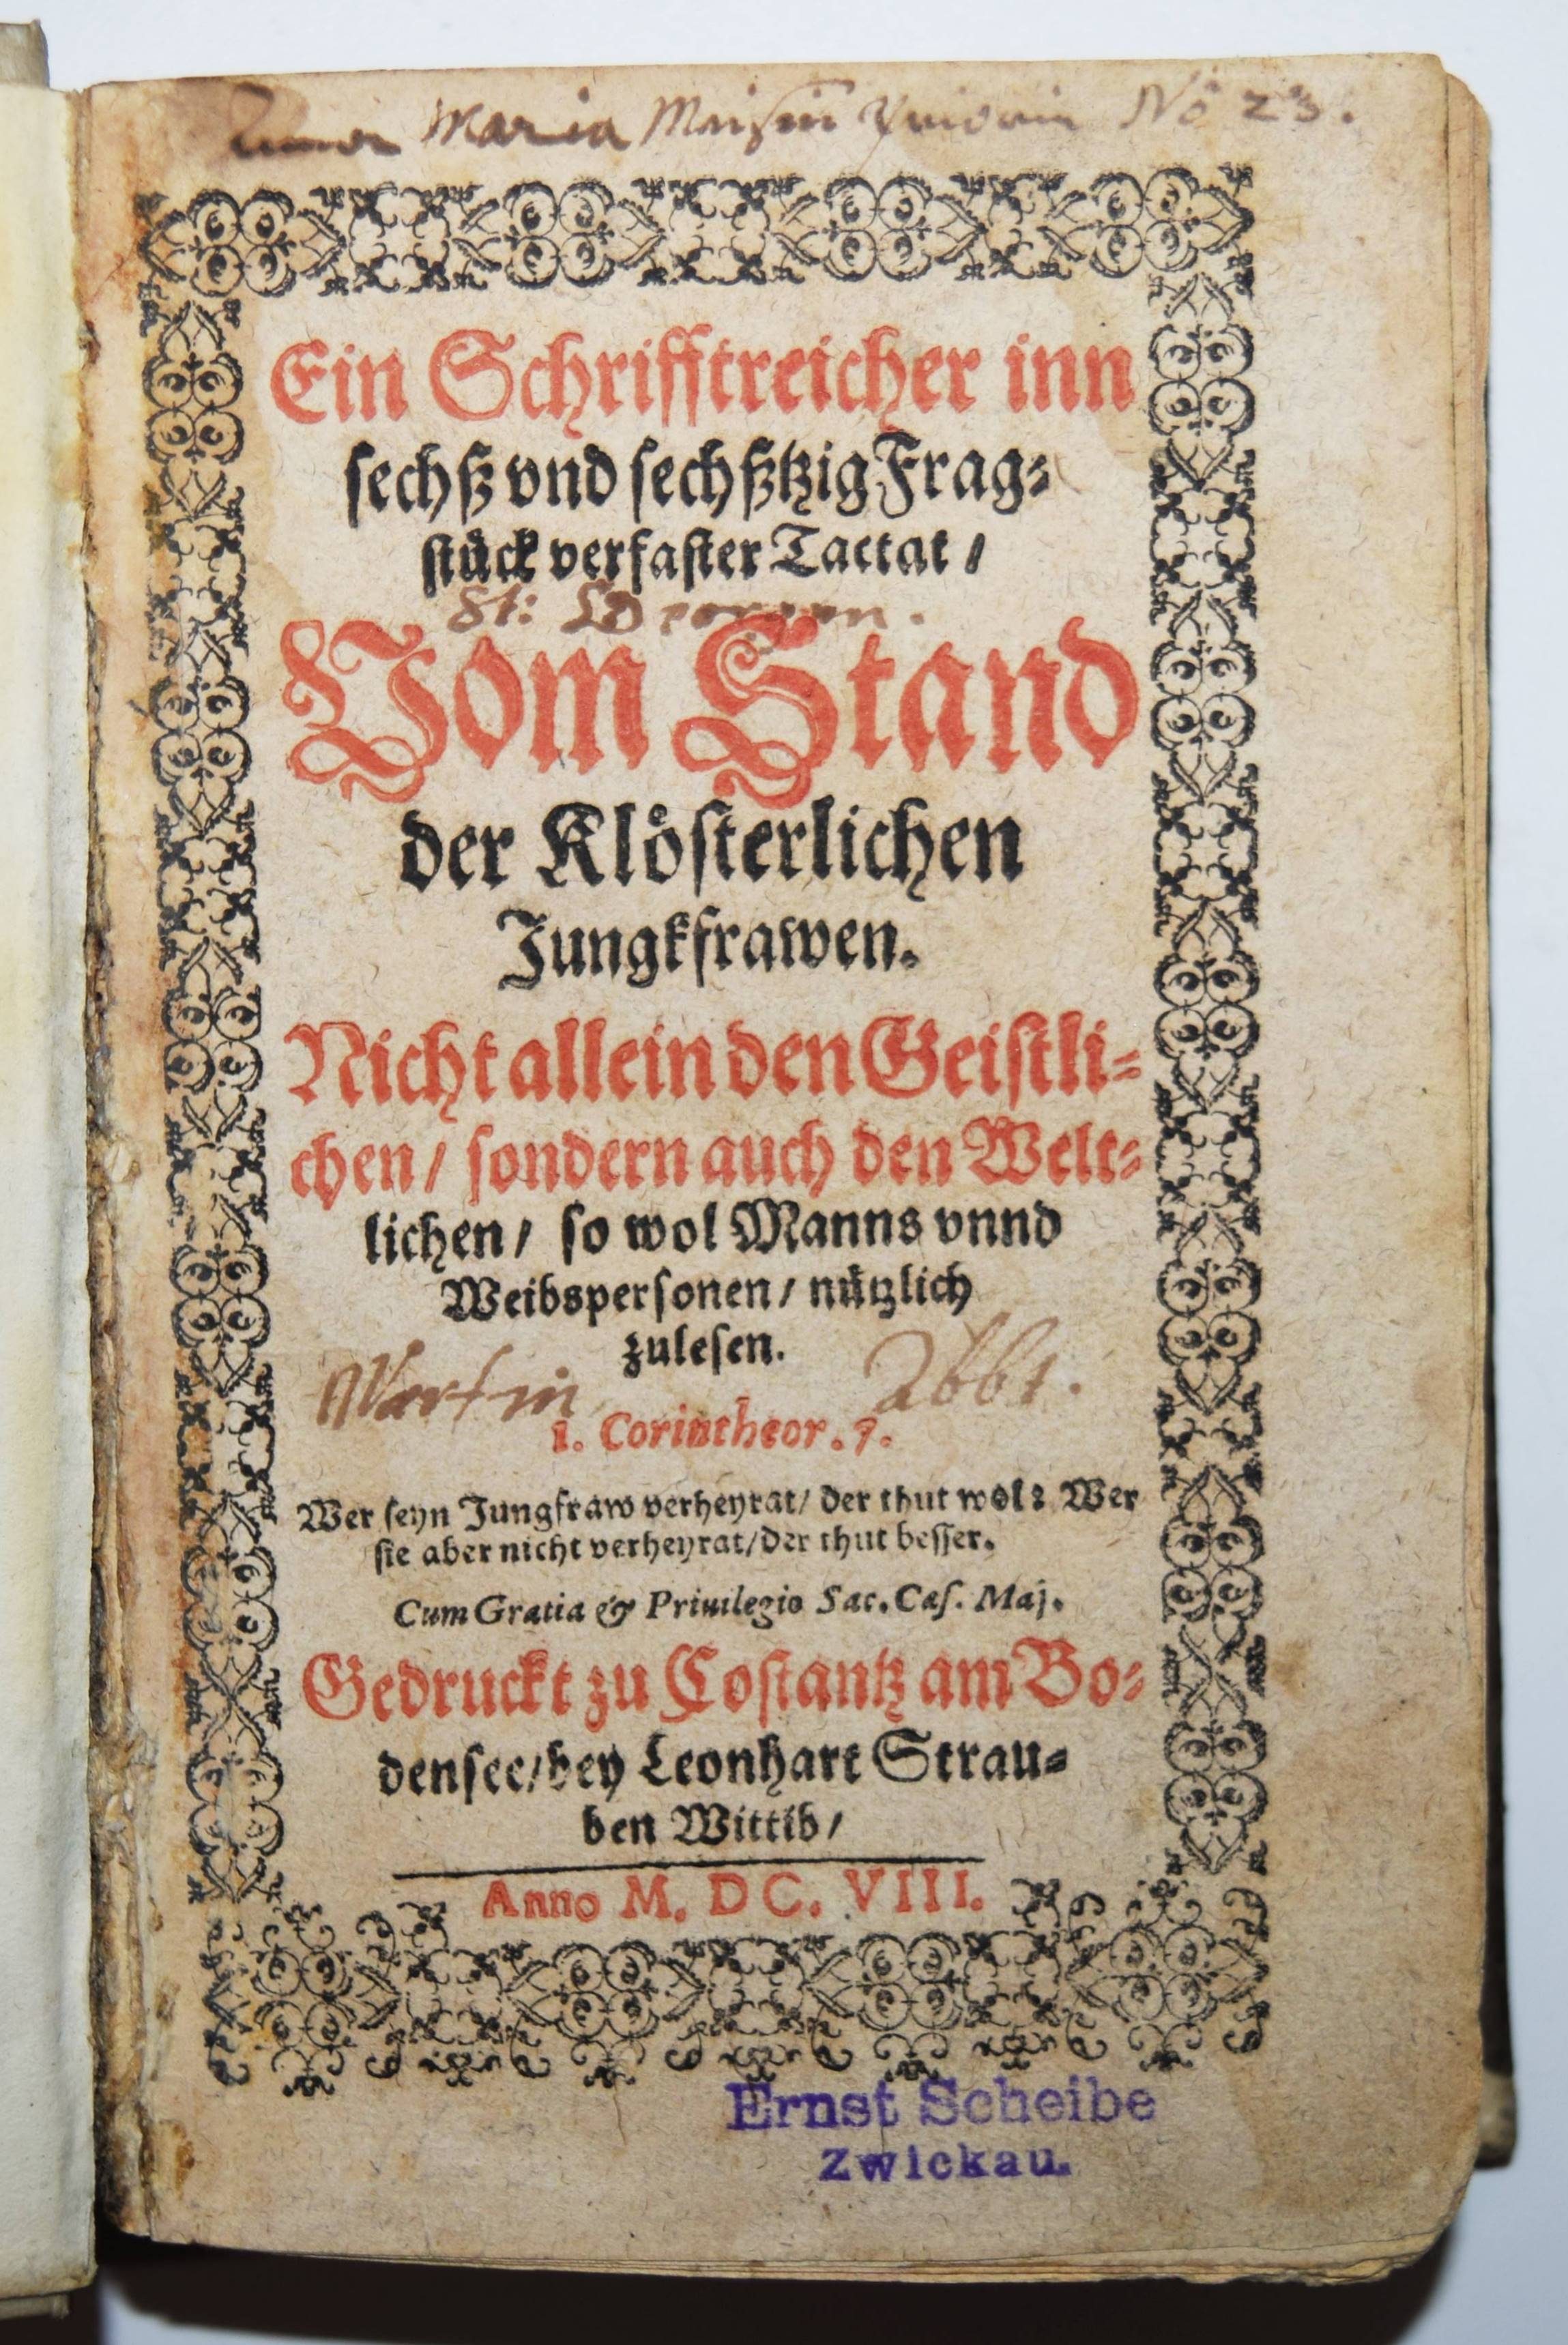 Maria No 23.
Ein Schrifftreicher inn
sechß vnd sechßtzig Frag⸗
stuͤck verfaster Tactat /
St:
Vom Stand
der Kloͤsterlichen
Jungkfrawen.
Nicht allein den Geistli⸗
chen / sondern auch den Welt⸗
lichen / so wol Manns vnnd
Weibspersonen / nuͤtzlich
zulesen.
Martin Abbt.
1. Corintheor. 7.
Wer seyn Jungfraw verheyrat / der thut wol: Wer
sie aber nicht verheyrat / der thut besser.
Cum Gratia & Priuilegio Sac. Cæs. Maj.
Gedruckt zu Costantz am Bo⸗
densee / bey Leonhart Strau⸗
ben Wittib /
Anno M. DC. VIII.
Ernst Scheibe
Zwickau.